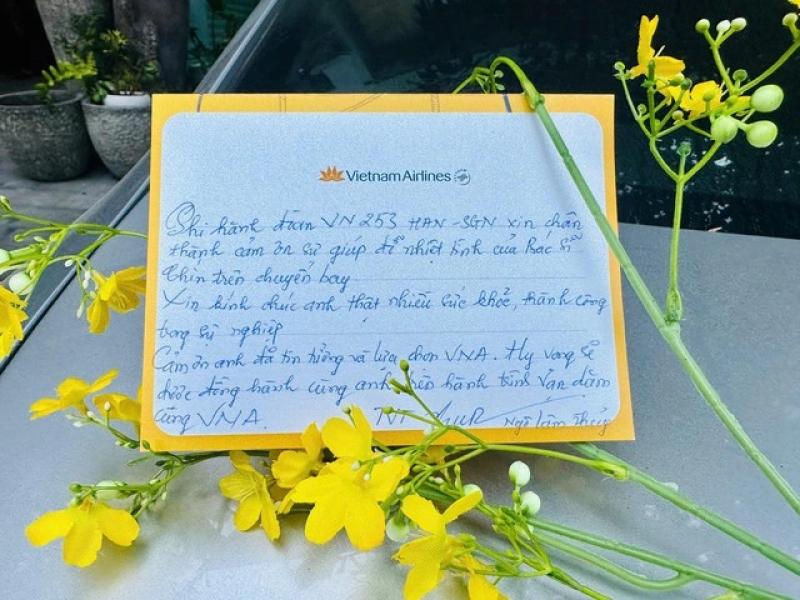 Vietnam Airlines
Phi hành đoàn VN253 HAN-SGN xin chân
thành cảm ơn sự giúp đỡ nhiệt tình của Bác sĩ
Thìn trên chuyến bay
Xin kính chúc anh thật nhiều sức khoẻ, thành công
trong sự nghiệp
Cảm ơn anh đã tin tưởng và lựa chọn VNA. Hy vọng sẽ
được đồng hành cùng anh trên hành trình vạn dặm
cùng VNA.
Ngô Lâm Thủy